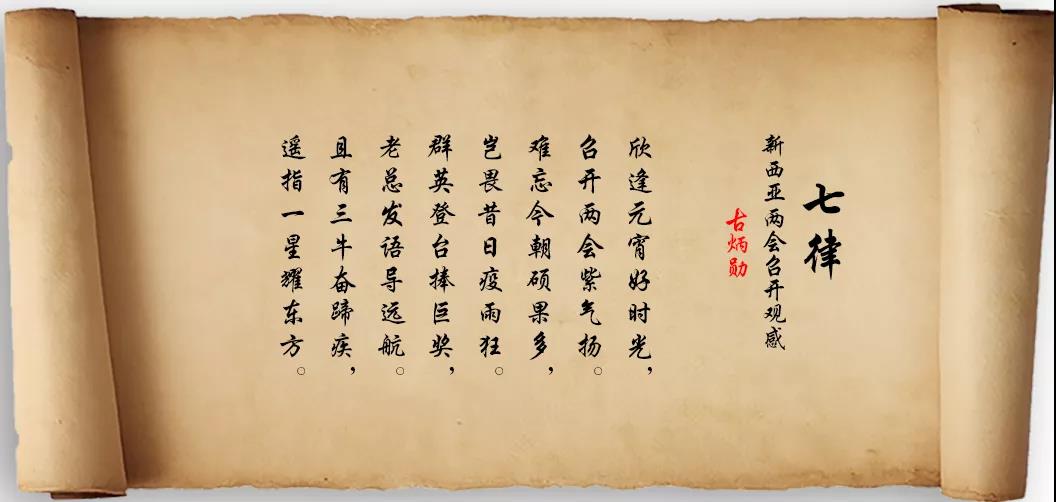 七律
新西亚两会召开观感
古炳勋
欣逢元宵好时光，
召开两会紫气扬。
难忘今朝硕果多，
岂畏昔日疫雨狂。
群英登台捧巨奖，
老总发语导远航。
且有三牛奋蹄疾，
遥指一星耀东方。